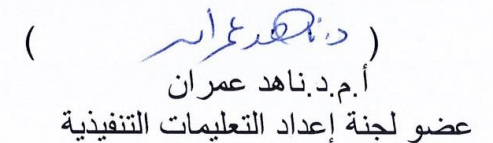 ( د. ناهد عمران )
أ.م.د.ناهد عمران
عضو لجنة إعداد التعليمات التنفيذية